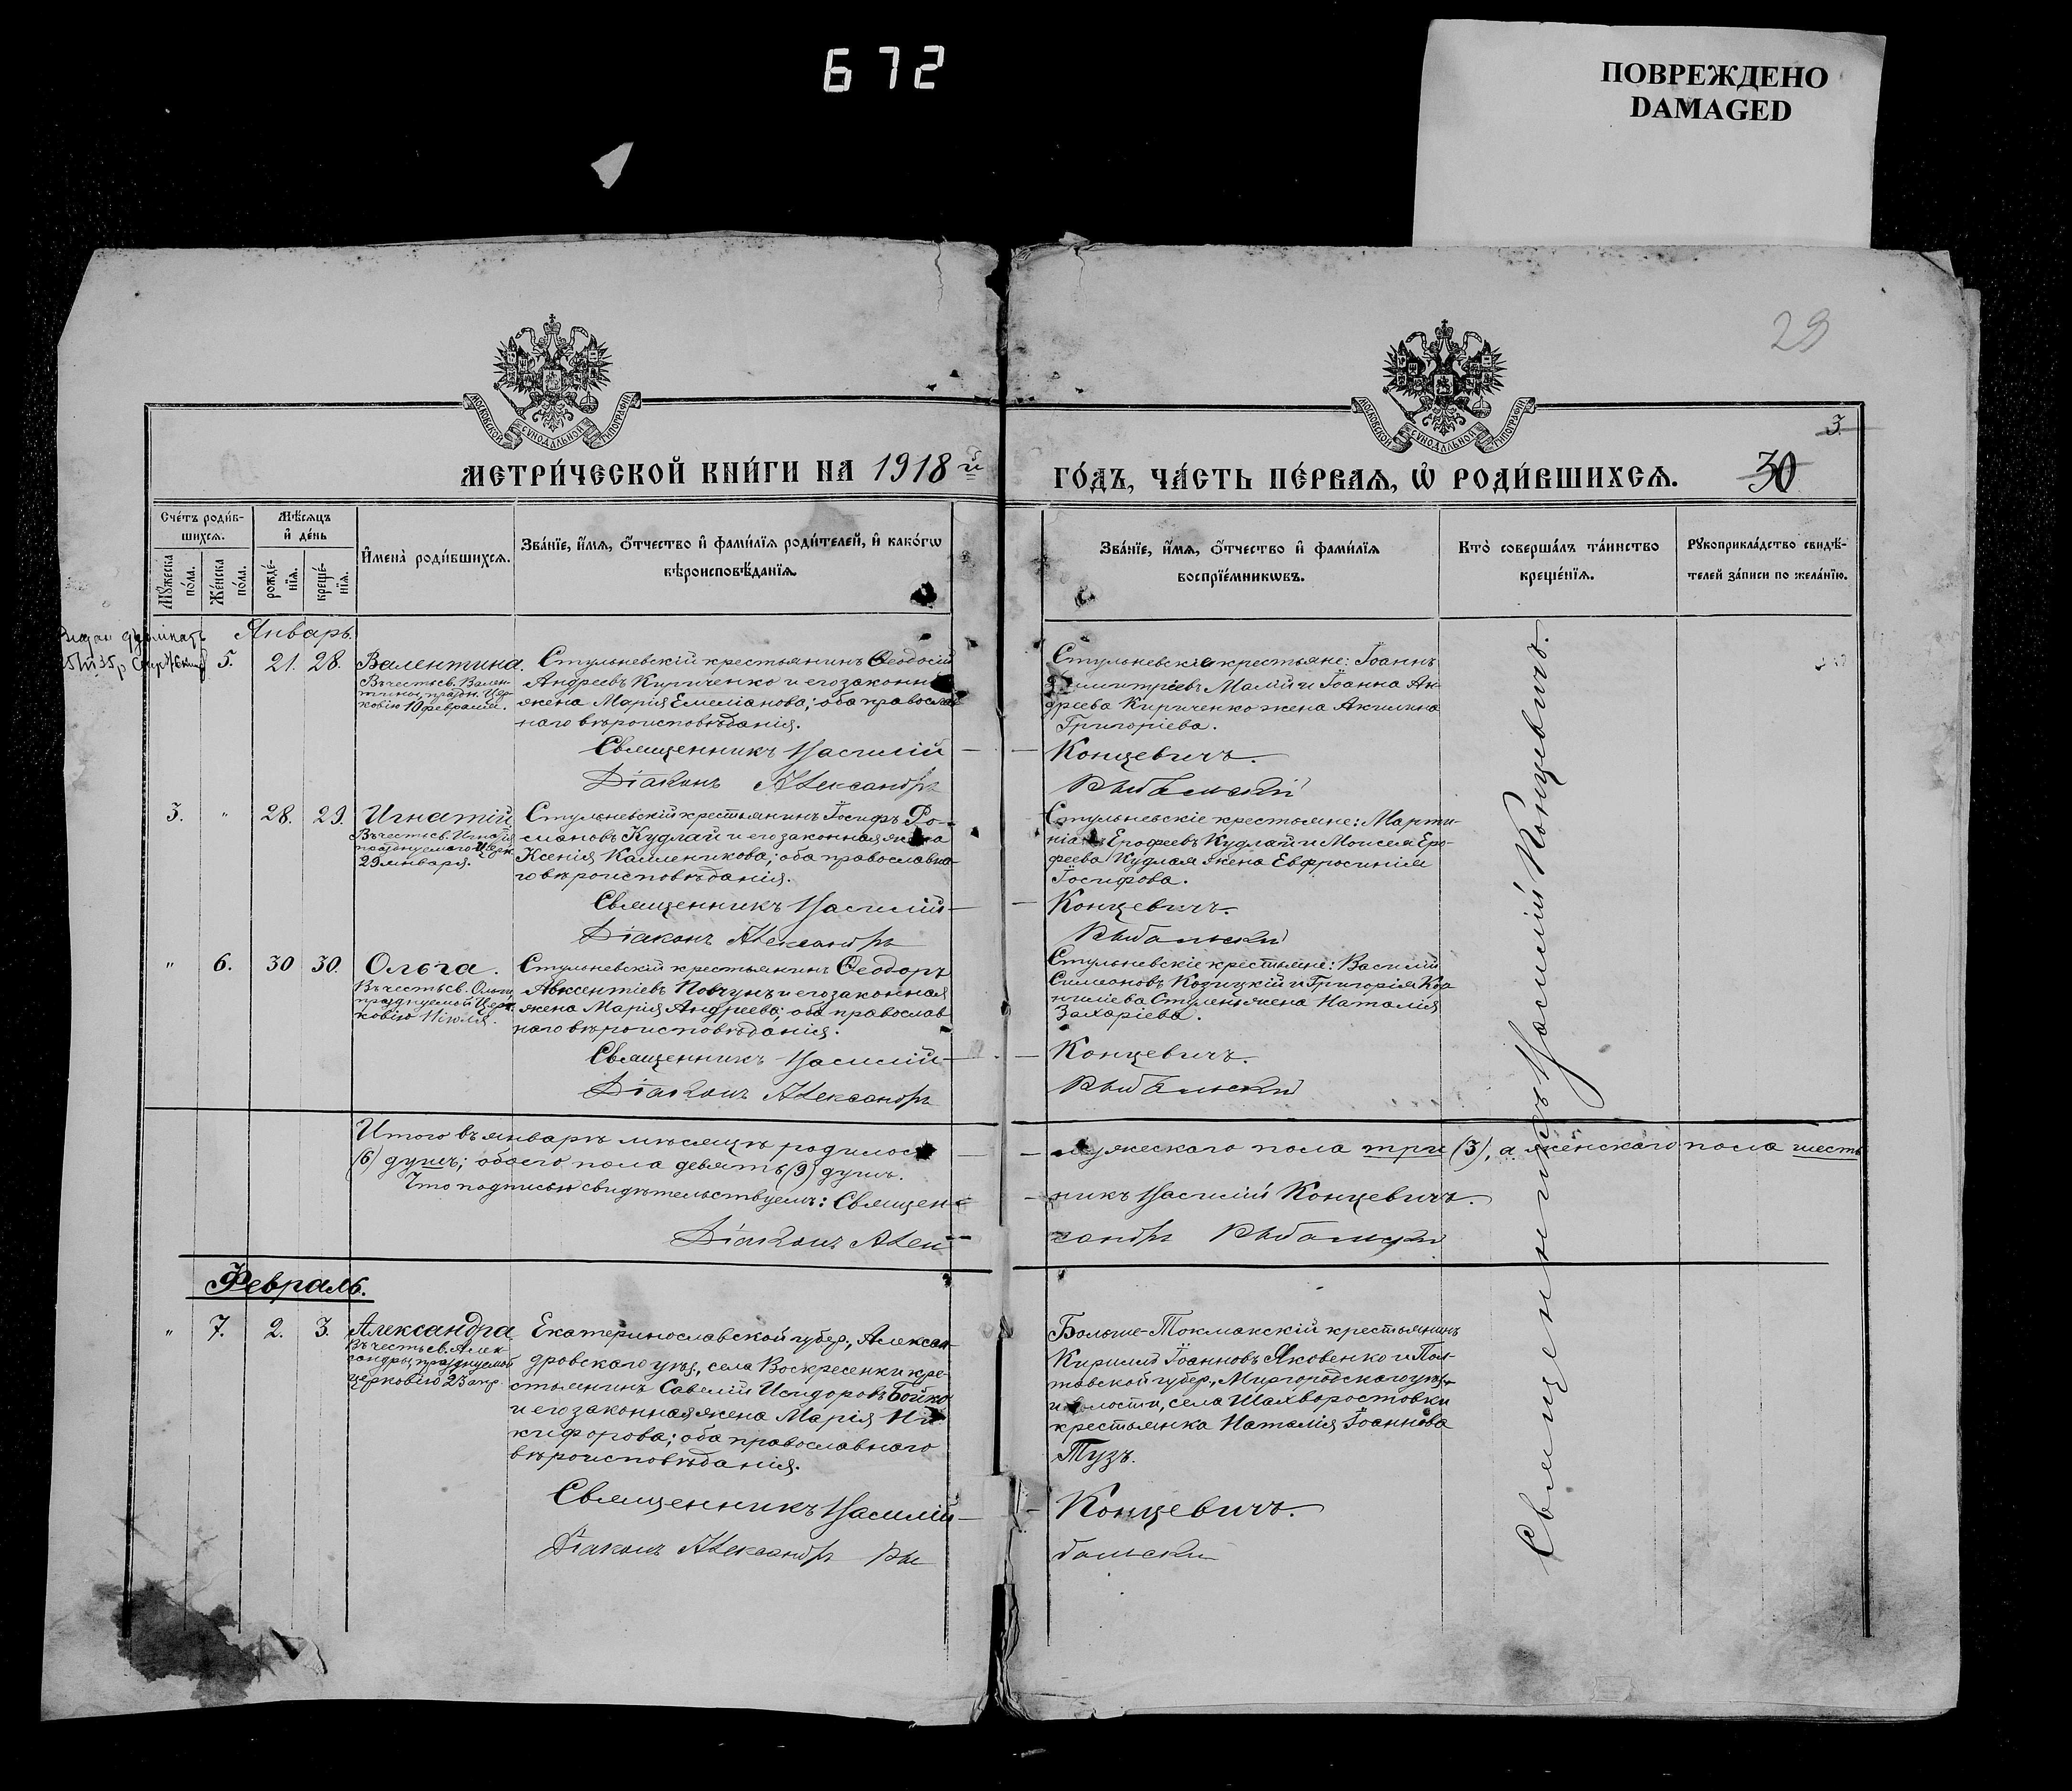 672
ПОВРЕЖДЕНО
DAMAGED
29
МОСКОВСКОЙ СѴНОДАЛЬНОЙ ТИПОГРАФІИ
МОСКОВСКОЙ СѴНОДАЛЬНОЙ ТИПОГРАФІИ
3.
МЕТРИ́ЧЕСКОЙ КНИ́ГИ НА 1918й
ГО́ДЪ, ЧА́СТЬ ПЕ́РВАѦ, Ѡ҆ РОДИ́ВШИХСѦ.
30
Сче́тъ роди́в-
шихсѧ.
Мꙋ́жеска
по́ла.
Же́нска
по́ла.
Мѣ́сѧцъ
и҆ де́нь
рожде́-
нїѧ.
креще́-
нїѧ.
И҆мена̀ роди́вшихсѧ.
Зва́нїе, и҆́мѧ, ѻ҆́тчество и҆ фами́лїѧ роди́телей, и҆ како́гѡ
вѣроисповѣ́данїѧ.
Зва́нїе, и҆́мѧ, ѻ҆́тчество и҆ фами́лїѧ
воспрїе́мникѡвъ.
Кто̀ соверша́лъ та́инство
креще́нїѧ.
Рꙋкоприкла́дство свидѣ́-
телей за́писи по жела́нїю.
Январь
5. 21. 28. Валентина.
Въ честь св. Вален-
тины, праздн. Цер-
ковію 10 февраля.
Стульневскій крестьянинъ Ѳеодосій
Андреевъ Кириченко и его законная
жена Марія Емеліанова; оба православ-
наго вѣроисповѣданія.
Священникъ Василій
Діаконъ Александръ
Стульневскіе крестьяне: Іоаннъ
Димитріевъ Малій и Іоанна Ан-
дреева Кириченко жена Акилина
Григоріева.
Концевичъ.
Рыбальскій
3. " 28. 29. Игнатій
Въ честь св. Игнатія
празднуемаго Церк.
29 января.
Стульневскій крестьянинъ Іосифъ Ро-
мановъ Кудлай и его законная жена
Ксенія Калленикова; оба православна-
го вѣроисповѣданія.
Священникъ Василій
Діаконъ Александръ
Стульневскіе крестьяне: Марти-
ніанъ Ерофеевъ Кудлай и Моисея Еро-
феева Кудлая жена Евфросинія
Іосифова.
Концевичъ.
Рыбальскій
" 6. 30 30. Ольга.
Въ честь св. Ольги,
празднуемой Церк-
ковію 11 іюля.
Стульневскій крестьянинъ Ѳеодоръ
Авксентіевъ Повчунъ и его законная
жена Марія Андреева; оба православ-
наго вѣроисповѣданія.
Священникъ Василій
Діаконъ Александръ
Стульневскіе крестьяне: Василій
Симеоновъ Козицкій и Григорія
жена Наталія
Захаріева.
Концевичъ.
Рыбальскій
Итого въ январѣ мѣсяцѣ родилось мужескаго пола три (3), а женскаго пола шесть
(6) душъ; обоего пола девять (9) душъ.
Что подписью свидѣтельствуемъ: Священникъ Василій Концевичъ.
Діаконъ Александръ Рыбальскій
Февраль.
" 7. 2. 3. Александра
Въ честь св. Алек-
сандры, празднуемой
церковію 23 апр.
Екатеринославской губер., Алексан-
дровскаго уѣз., села Воскресенки кре-
стьянинъ Савелій Исидоровъ Бойко
и его законная жена Марія Ни-
кифорова; оба православнаго
вѣроисповѣданія.
Священникъ Василій
Діаконъ Александръ Ры
Больше-Токмакскій крестьянинъ
Кириллъ Іоанновъ Яковенко и Пол-
тавской губер., Миргородскаго уѣз.
и волости, села Шахворостовки
крестьянка Наталія Іоаннова
Тузъ.
Концевичъ.
бальскій
Священникъ Василій Концевичъ.